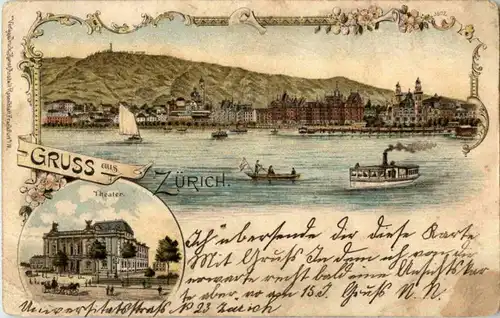 GRUSS aus
ZÜRICH.
Theater.
Ich übersende dir diese Karte
Mit Gruss In dem ich von
erwarte recht bald eine Ansichtskar
te aber. Gruss N. N.
Universitätsstrass No 23 Zurich